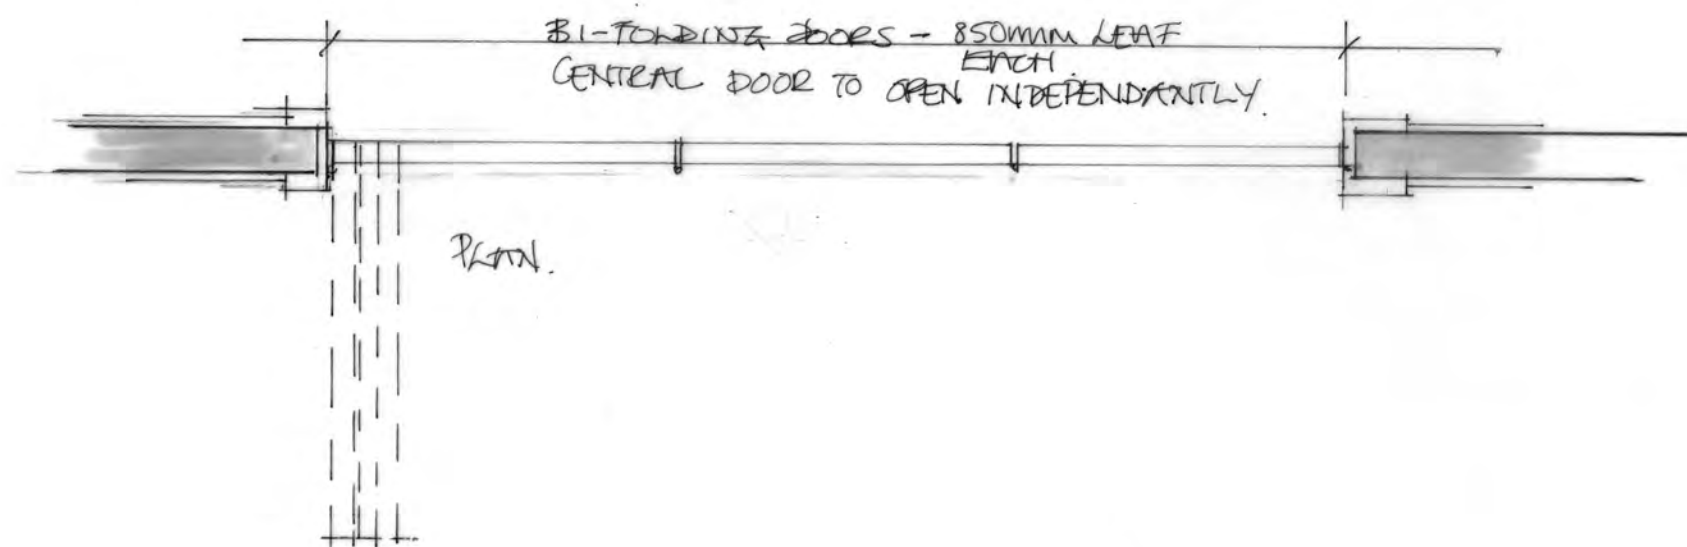 BI-FOLDING DOORS - 850MM LEAF
EACH.
CENTRAL DOOR TO OPEN INDEPENDANTLY.
PLAN.